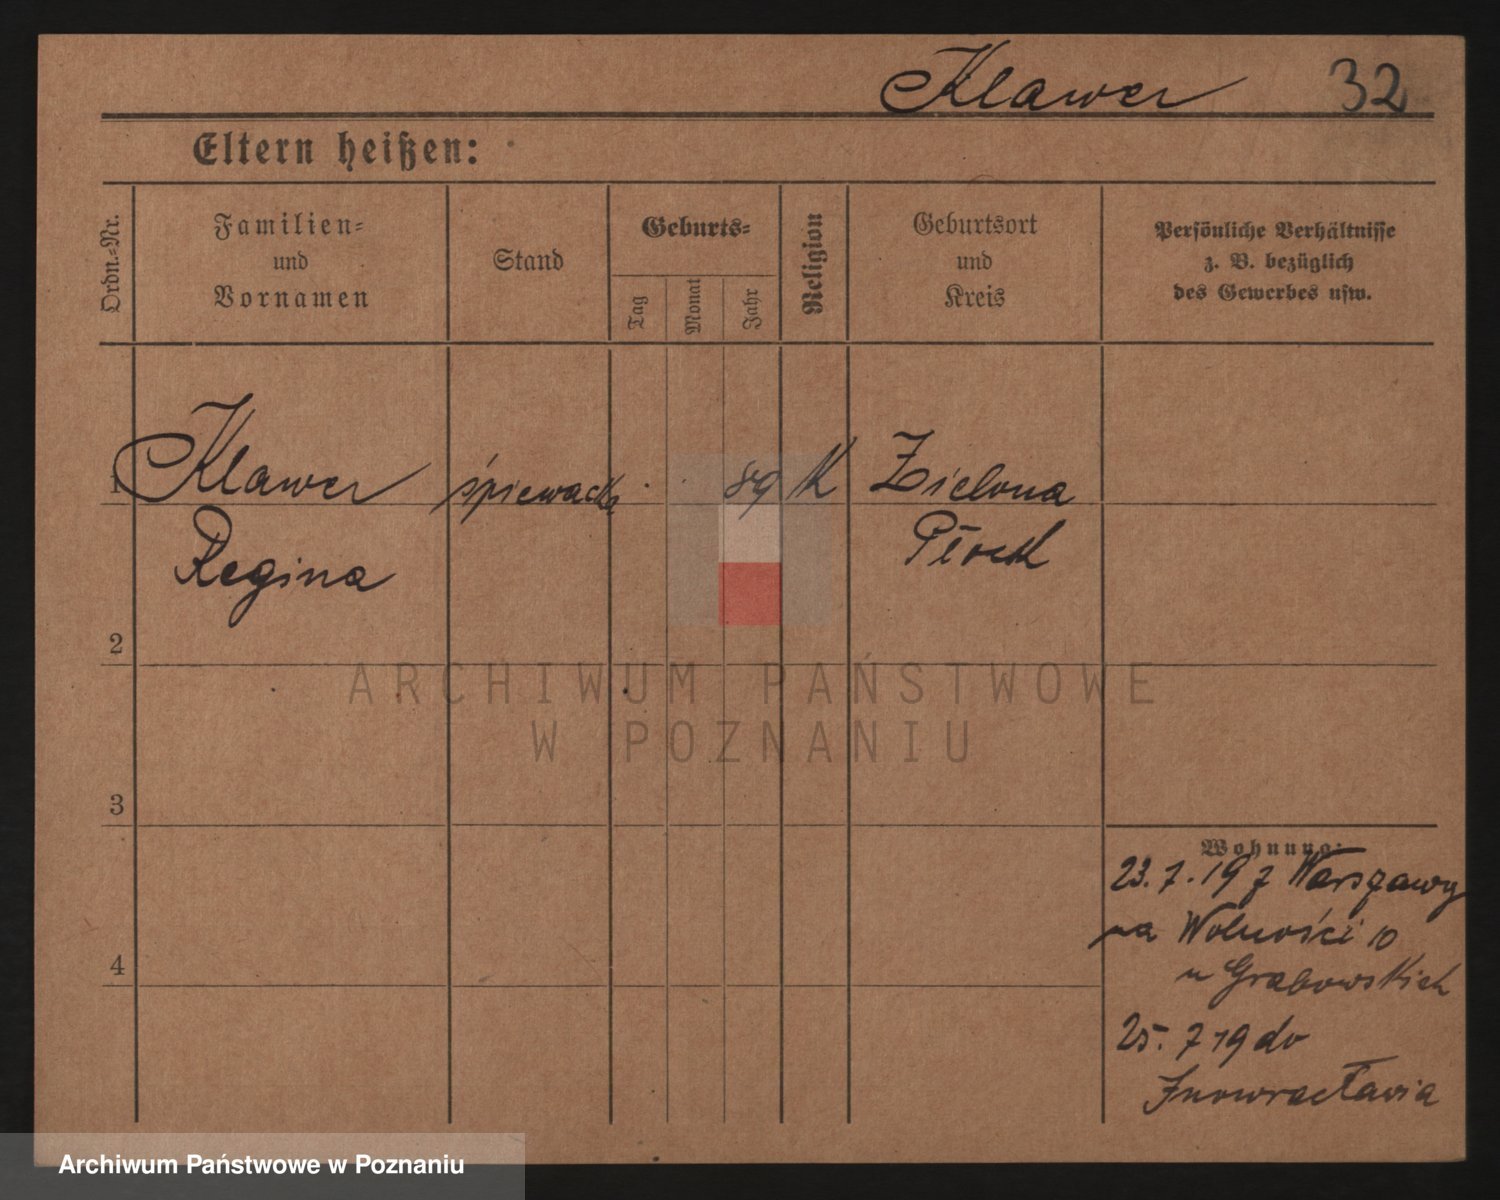 Klawer 32
Eltern heißen:
Ordn.-Nr.
Familien-
und
Vornamen
Stand
Geburts-
Tag
Monat
Jahr
Religion
Geburtsort
und
Kreis
Persönliche Verhältnisse
z. B. bezüglich
des Gewerbes usw.
1 Klawer śpiewacka 89 K Zielona
Regina Płock
2
3
4
Wohnung:
23.7.19 z Warszawy
na Wolności 10
u Grabowskich
25. 7 19 do
Inowrocławia
ARCHIWUM PAŃSTWOWE
W POZNANIU
Archiwum Państwowe w Poznaniu